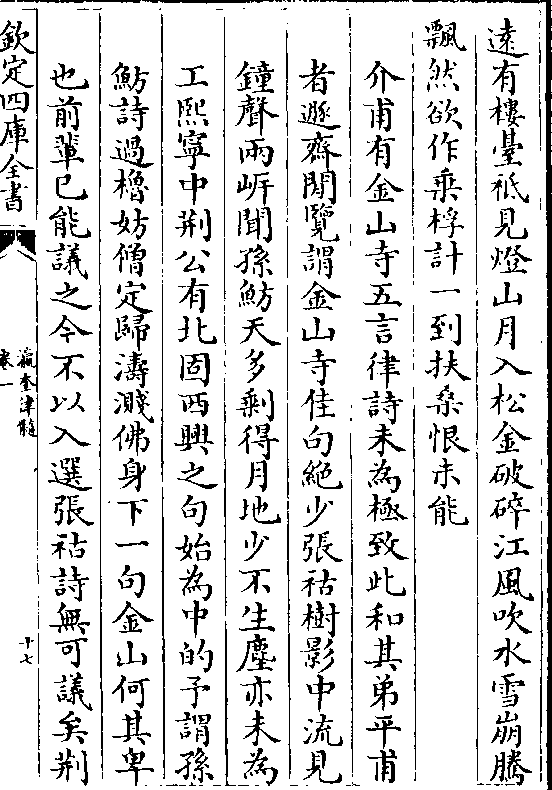 遠有樓臺祗見燈山月入松金破碎江風吹水雪崩騰
飄然欲作乗桴計一到扶桑恨未能
介甫有金山寺五言律詩未為極致此和其弟平甫
者遯齋閒覽謂金山寺佳句絶少張祜樹影中流見
鐘聲兩岸聞孫魴天多剰得月地少不生塵亦未為
工熙寧中荆公有北固西興之句始為中的予謂孫
魴詩過櫓妨僧定歸濤濺佛身下一句金山何其卑
也前軰已能議之今不以入選張祜詩無可議矣荆
欽定四庫全書
瀛奎律髓
卷一
十七